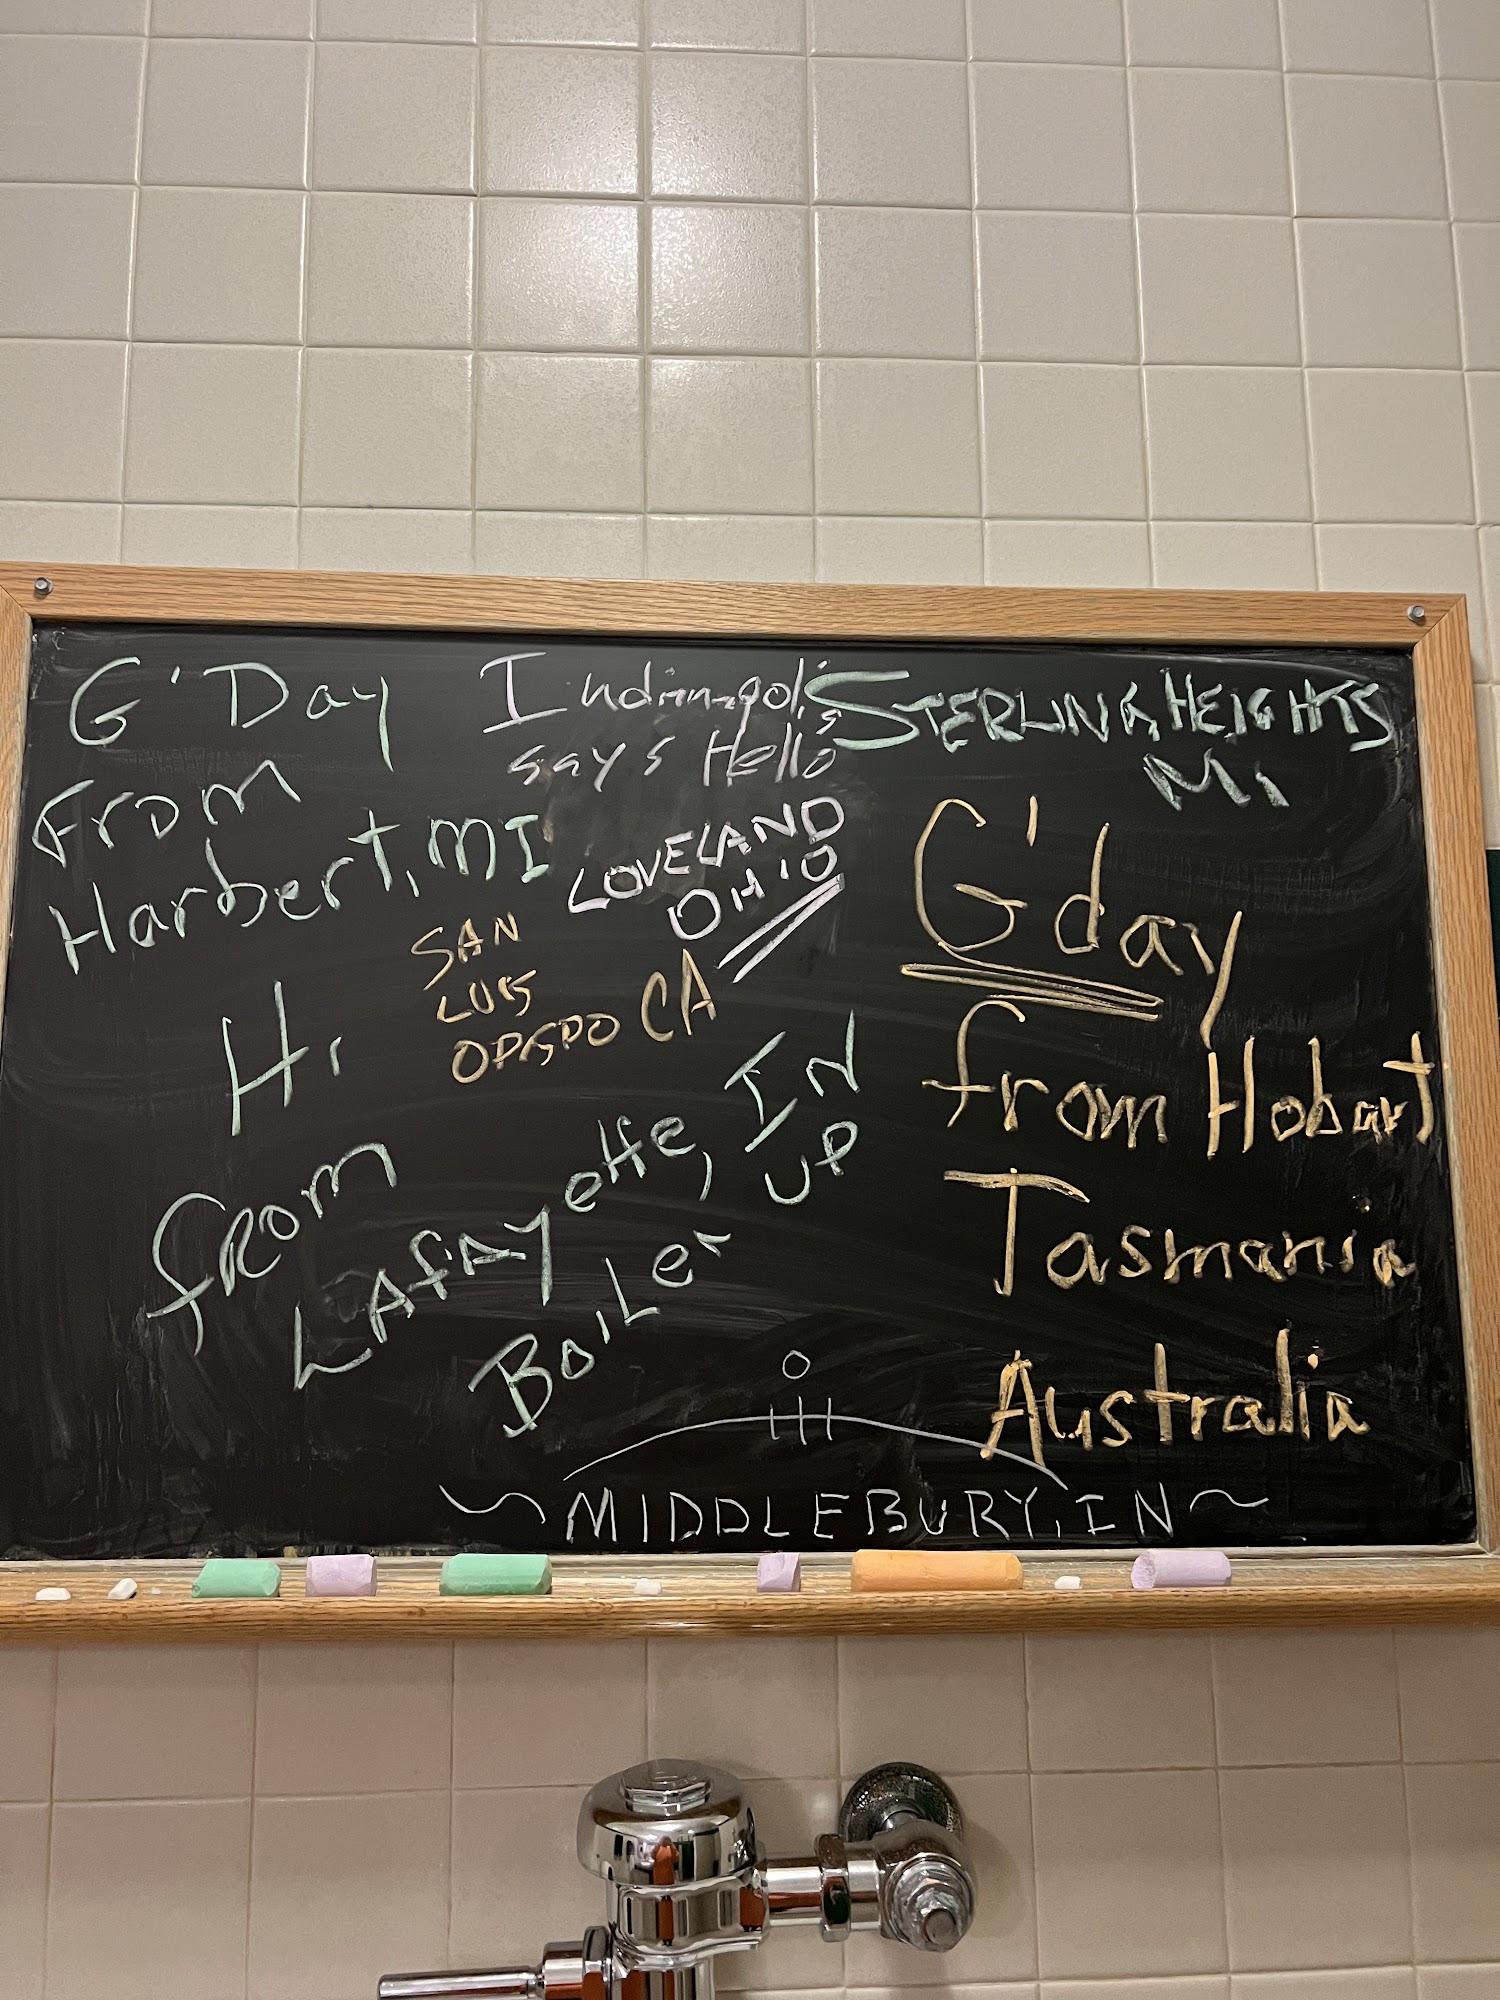 G'Day
From
Harbert, MI
Indianapolis
says Hello
STERLING HEIGHTS
Mi
LOVELAND
OHIO
SAN
LUIS
OPISPO CA
G'day
from Hobart
Tasmania
Australia
Hi
FROM
LAFAYette, IN
BoiLer UP
MIDDLEBURY, IN